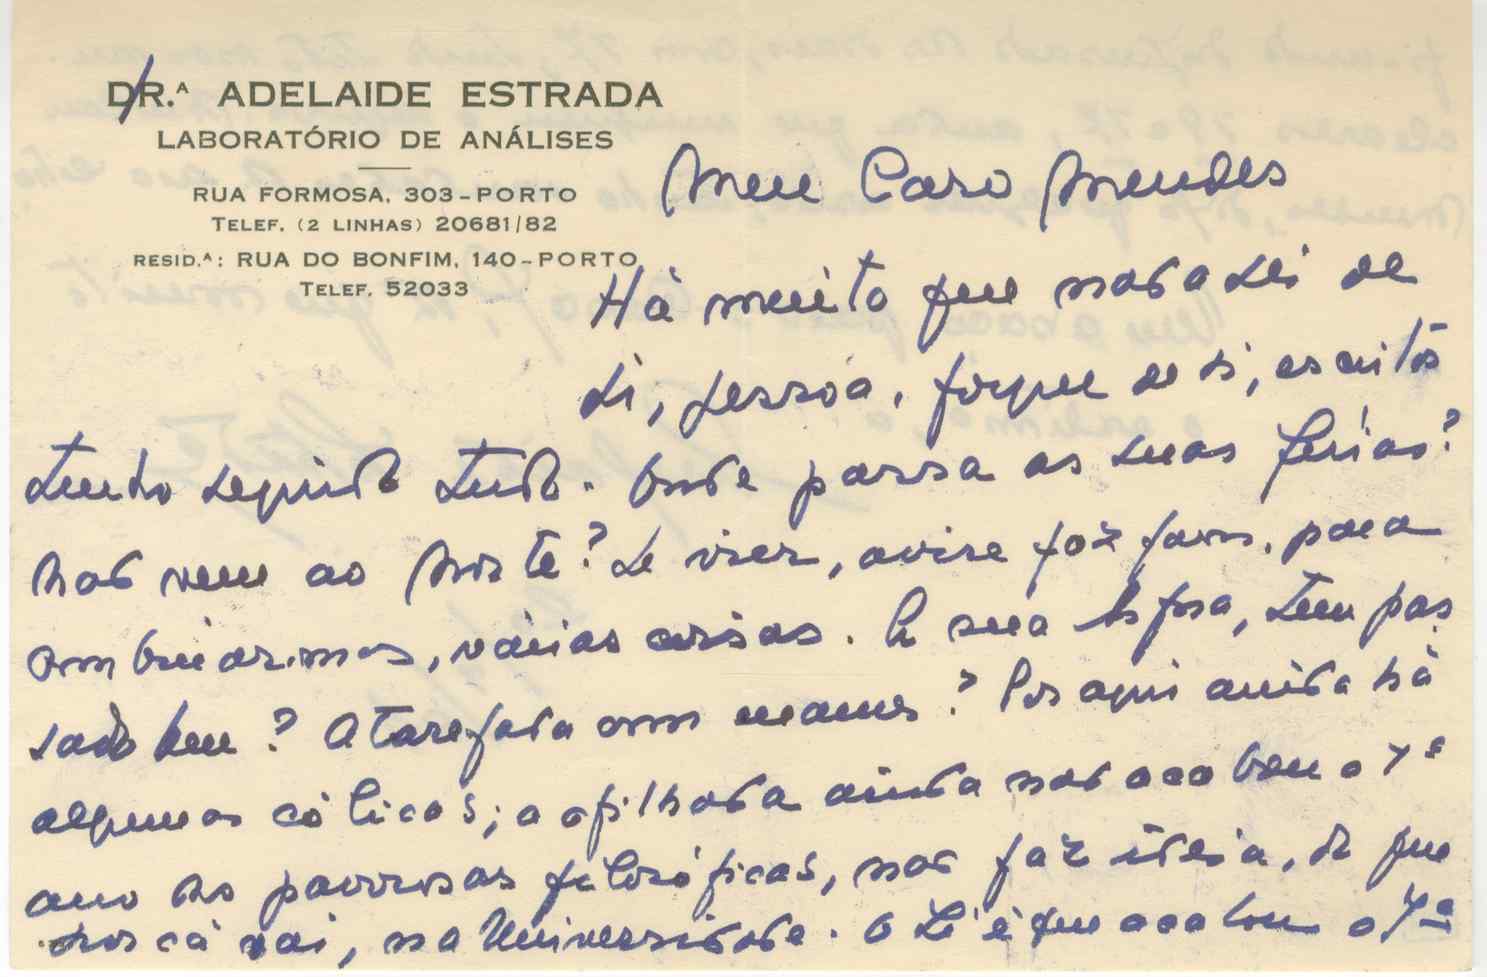 DR.ᴬ ADELAIDE ESTRADA
LABORATÓRIO DE ANÁLISES
RUA FORMOSA, 303-PORTO
TELEF. (2 LINHAS) 20681/82
RESID.ᴬ: RUA DO BONFIM, 140-PORTO
TELEF. 52033
Meu Caro Mendes
Há muito que nada sei de
si, pessoa, porque de si, escritos
tenho seguido tudo. Onde passa as suas férias?
Não vem ao Norte? Se vier, avise faz favor, para
combinarmos, várias coisas. A sua Esposa, tem pas
sado bem? Atarefada com exames? Por aqui ainda há
algumas cólicas; a afilhada ainda não acabou o 7º
ano das filosóficas, não faz ideia, do que
por cá vai, na Universidade. O Zé é que acabou o 7º